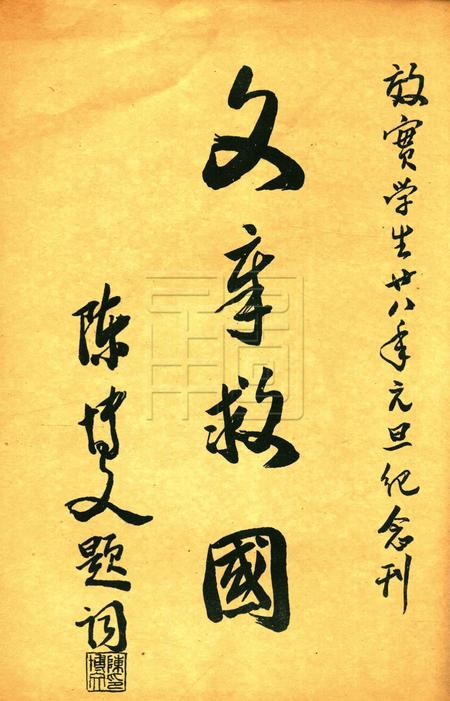 效實学生廿八年元旦纪念刊
文章救國
陳博文題詞
陳博文印